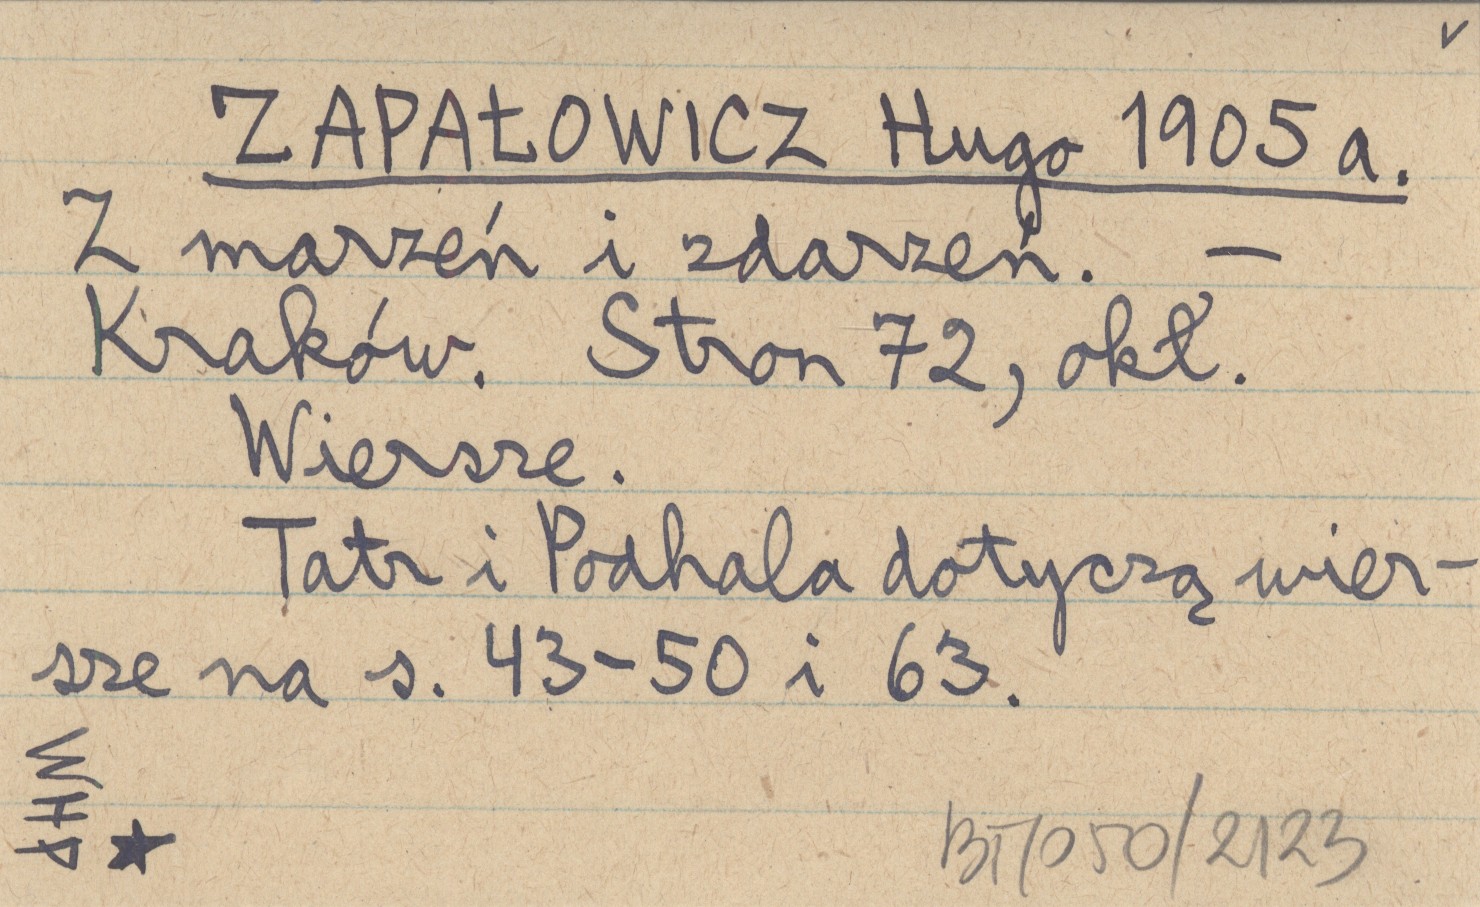 v
ZAPAŁOWICZ Hugo 1905 a.
Z marzeń i zdarzeń. —
Kraków. Stron 72, okł.
Wiersze.
Tatr i Podhala dotyczą wier-
sze na s. 43-50 i 63.
WHP
BT/050/2123